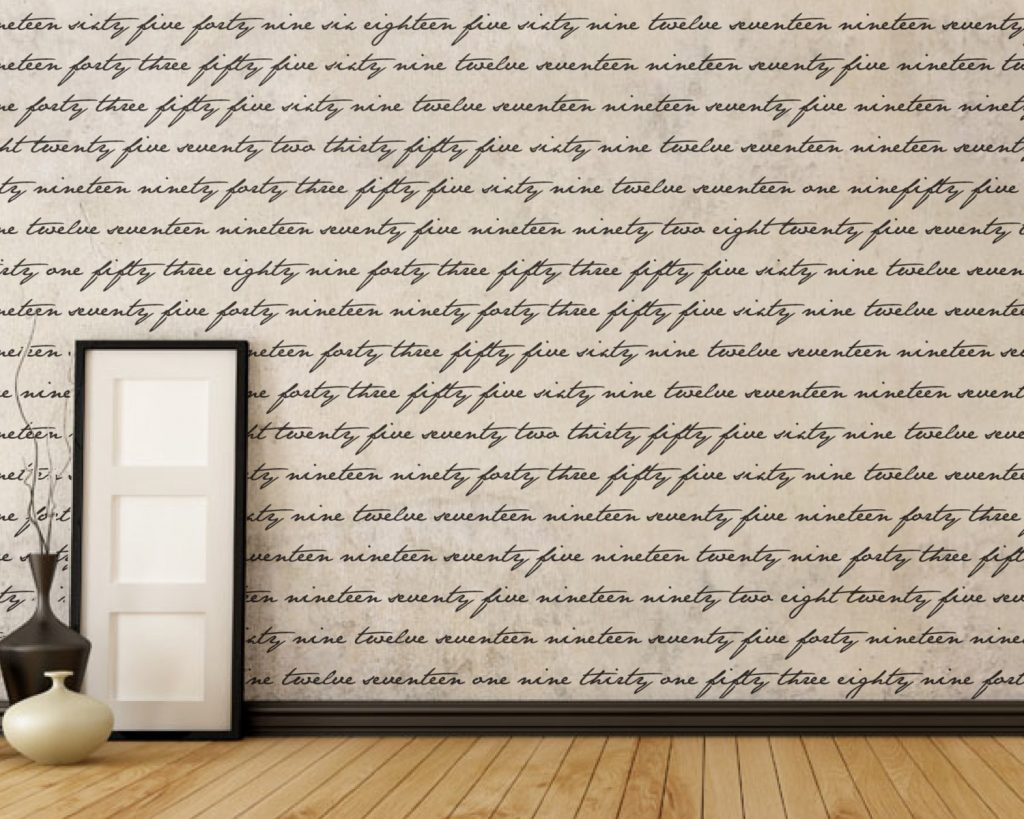 neteen sixty five forty nine six eighteen five sixty nine twelve seventeen nineteen seventy
neteen forty three fifty five sixty nine twelve seventeen nineteen seventy five nineteen tw
ne forty three fifty five sixty nine twelve seventeen nineteen seventy five nineteen ninety
ht twenty five seventy two thirty fifty five sixty nine twelve seventeen nineteen seventy
ty nineteen ninety forty three fifty five sixty nine twelve seventeen one ninefifty five
ne twelve seventeen nineteen seventy five nineteen ninety two eight twenty five seventy t
irty one fifty three eighty nine forty three fifty three fifty five sixty nine twelve seven
neteen seventy five forty nineteen ninety forty three fifty five sixty nine twelve sevente
neteen neteen forty three fifty five sixty nine twelve seventeen nineteen se
e nine ne forty three fifty five sixty nine twelve seventeen nineteen seventy
neteen ht twenty five seventy two thirty fifty five sixty nine twelve seve
ty nineteen ninety forty three fifty five sixty nine twelve seventeen
ne fort xty nine twelve seventeen nineteen seventy five nineteen forty three
e venteen nineteen seventy five nineteen twenty nine forty three fift
ty een nineteen seventy five nineteen ninety two eight twenty five sev
ixty nine twelve seventeen nineteen seventy five forty nineteen nine
ne twelve seventeen one nine thirty one fifty three eighty nine fort